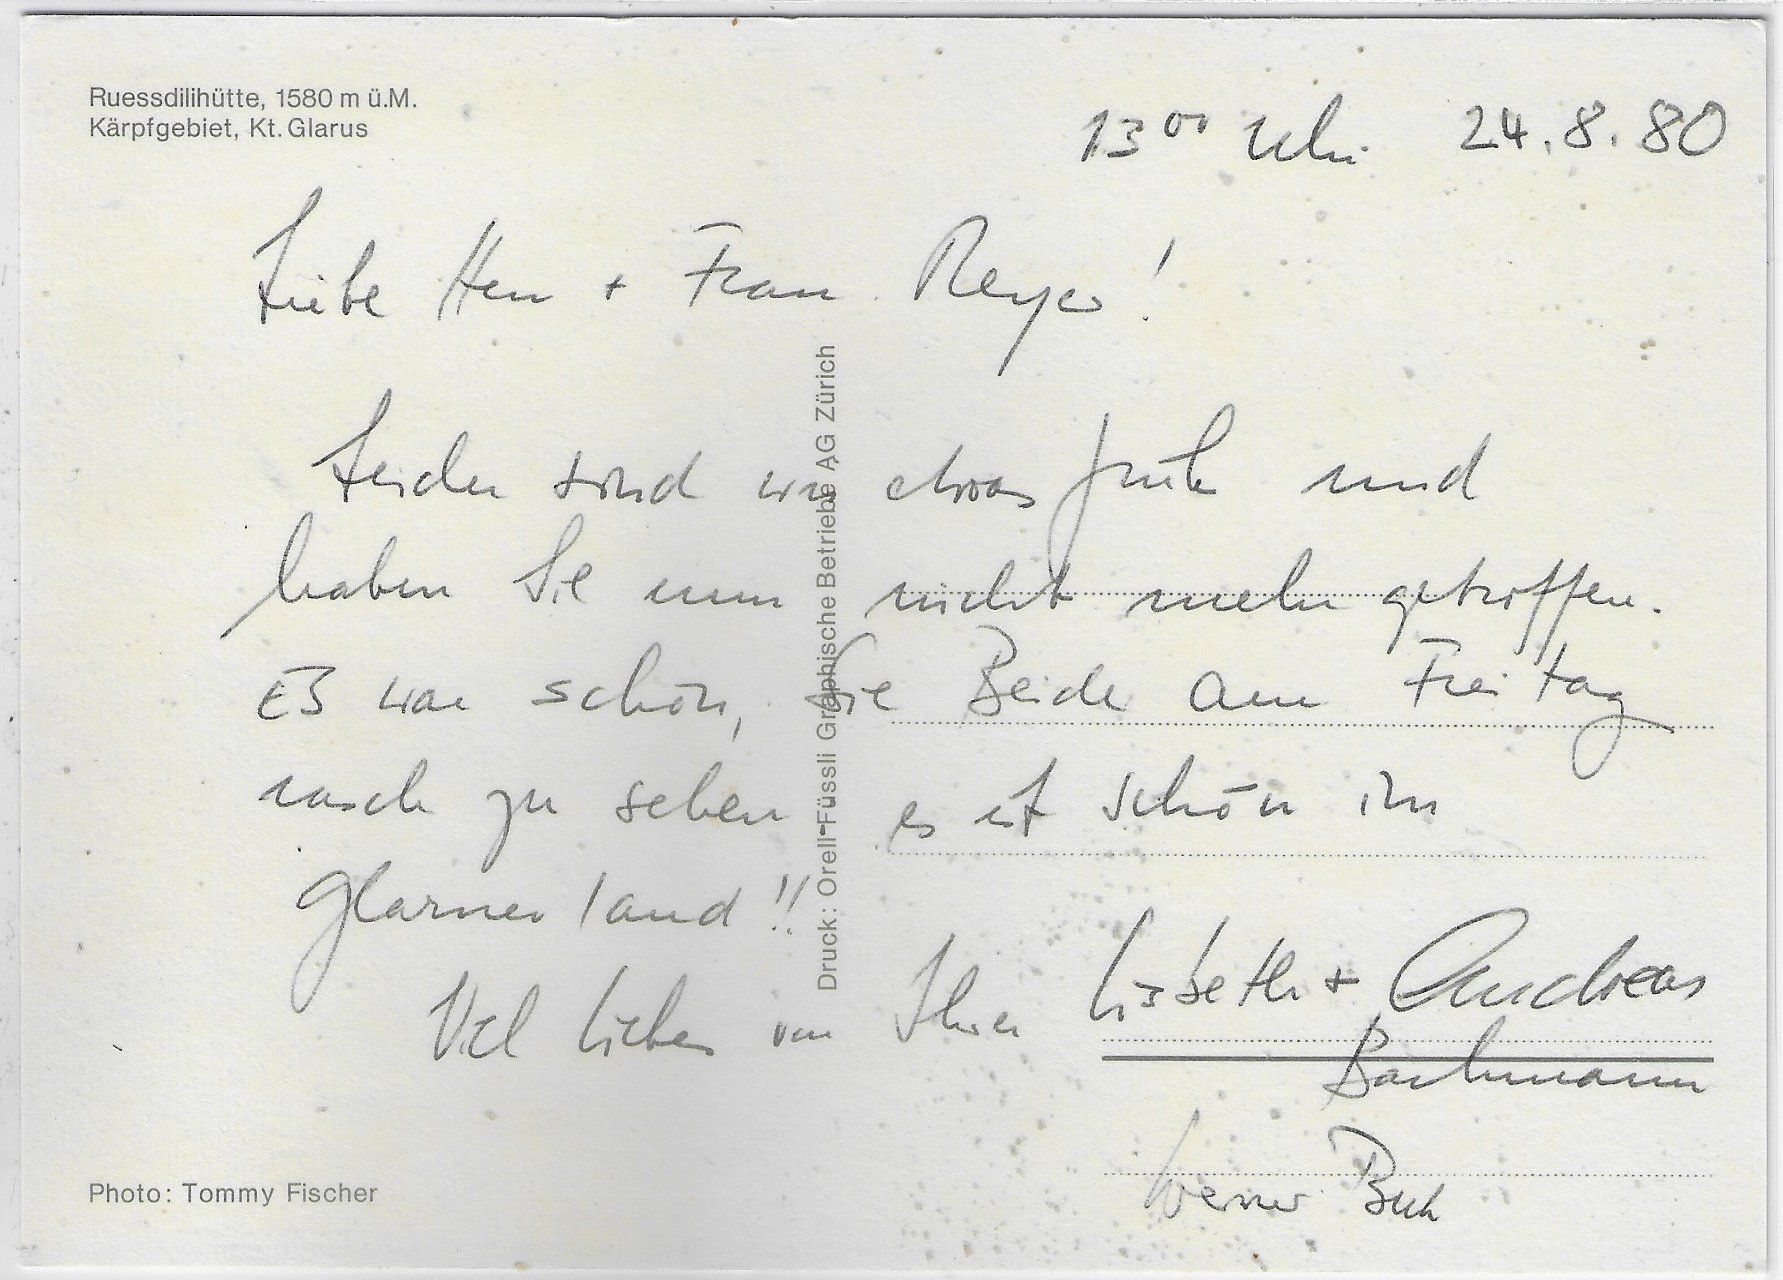 Ruessdilihütte, 1580 m ü.M.
Kärpfgebiet, Kt. Glarus
13⁰⁰ Uhr 24.8.80
Liebe Herr + Frau
Leider sind wir etwas früh und
haben Sie nun nicht mehr getroffen.
Es war schön, Sie Beide am Freitag
rasch zu sehen es ist schön im
Glarnerland!!
Viel Liebes von Ihren Lisbeth + Andreas
Bachmann
Werner
Druck: Orell-Füssli Graphische Betriebe AG Zürich
Photo: Tommy Fischer